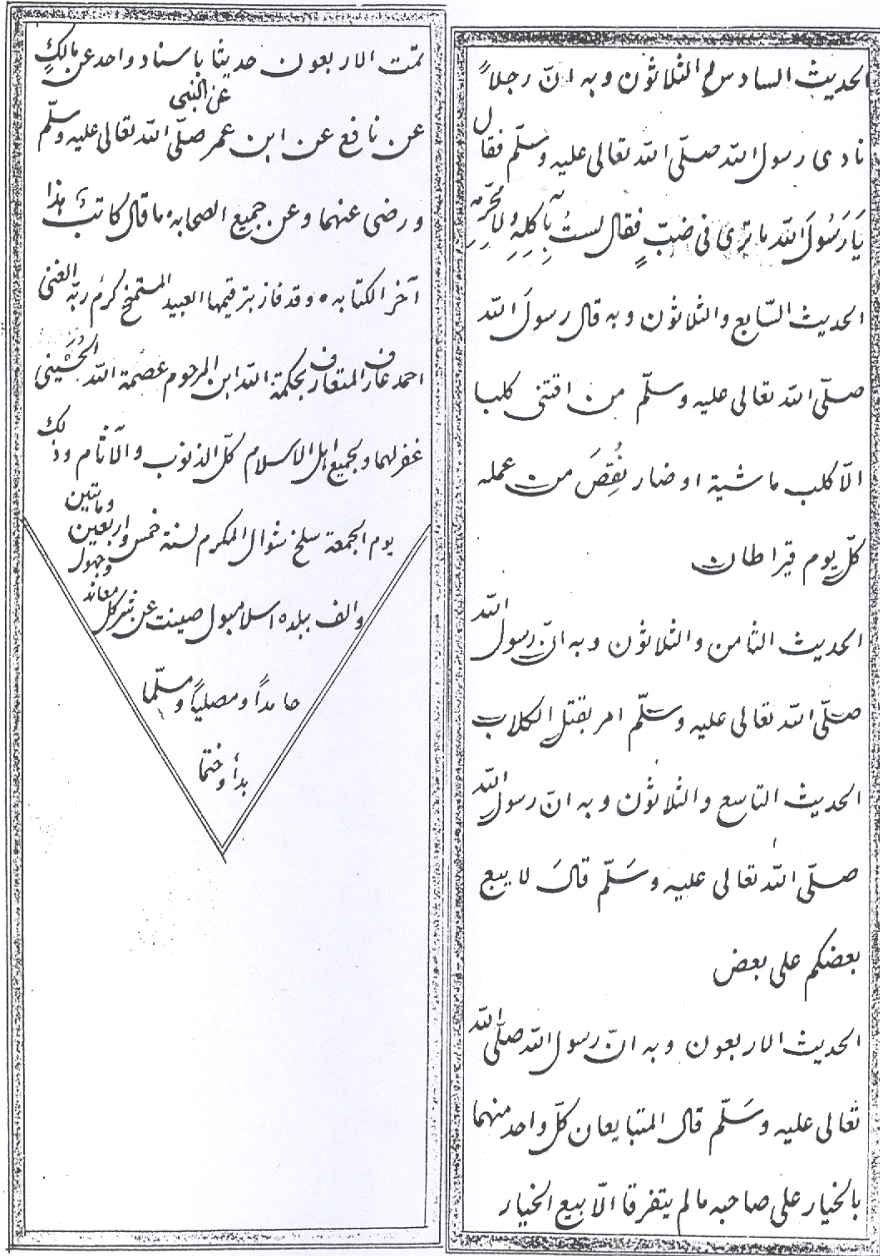 الحديث السادس و الثلاثون وبه انّ رجلاً
نادى رسول الله صلّى الله تعالى عليه وسلّم فقال
يَا رَسُولَ الله ما ترى فى ضبّ فقال لستُ بِآكِلِهِ ولا مُحَرِّمِهِ
الحديث السّابع والثلاثون وبه قال رسول الله
صلّى الله تعالى عليه وسلّم من اقتنى كلبا
الّا كلب ماشية او ضار نُقِصَ من عمله
كلّ يوم قيراطان
الحديث الثامن والثلاثون وبه انّ رسول الله
صلّى الله تعالى عليه وسلّم امر بقتل الكلاب
الحديث التاسع والثلاثون وبه انّ رسول الله
صلّى الله تعالى عليه وسَلّم قالَ لا يبع
بعضكم على بعض
الحديث الاربعون وبه انّ رسول الله صلّى الله
تعالى عليه وسَلّم قال المتبايعان كلّ واحد منهما
بالخيار على صاحبه مالم يتفرقا الّا بيع الخيار
تمّت الاربعون حديثا باسناد واحد عن مالكٍ
عن نافع عن ابن عمر عن النبى صلّى الله تعالى عليه وسلّم
ورضى عنهما وعن جميع الصحابه ما قال كاتبٌ هذا
آخر الكتابه وقد فاز بترقيمها العبيد المستمنح كرم ربّه الغنى
احمد عارف المتعارف بحكمة الله ابن المرحوم عصمة الله الحُسَيْنى
غفر لهما ولجميع اهل الاسلام كلّ الذنوب والآثام وذلك
يوم الجمعة سلخ شوال المكرم لسنة خمس واربعين ومايتين
والف ببلده اسلامبول صينت عن شر كل معاند وجهول
حامداً ومصلياً ومسلّما
بدأ وختما